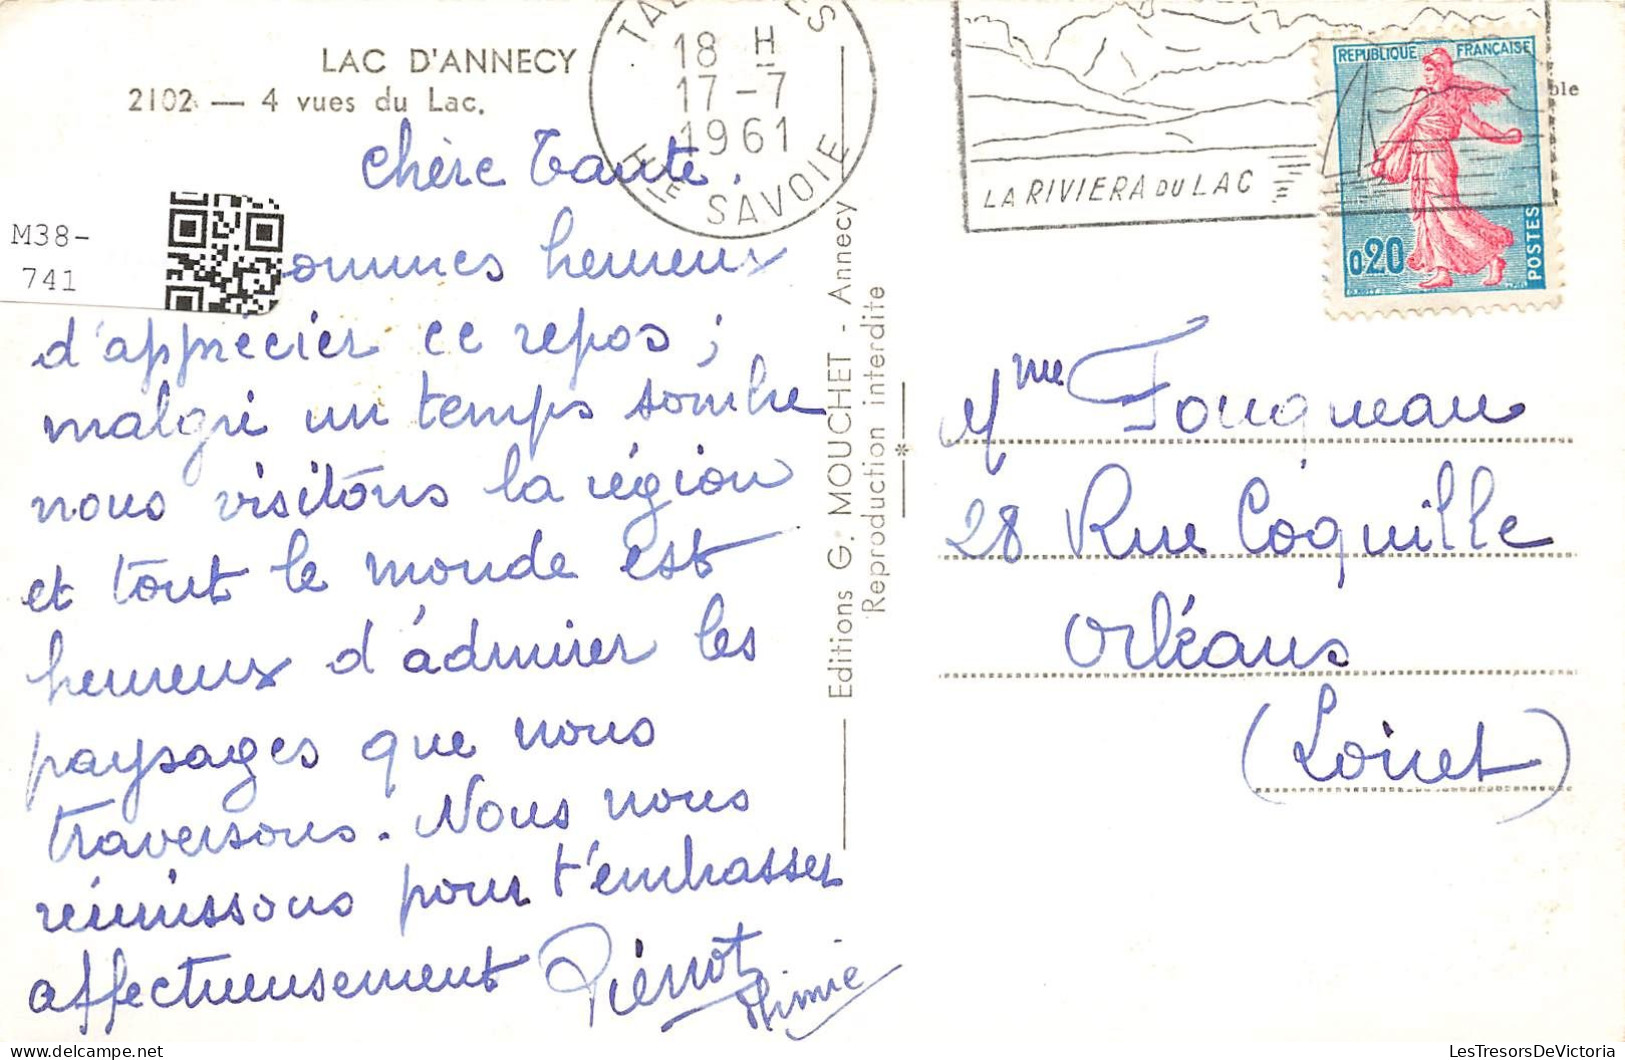 LAC D'ANNECY
2102 — 4 vues du Lac.
M38-
741
Chère Tante.
ommes heureux
d'apprécier ce repos ;
malgré un temps sombre
nous visitons la région
et tout le monde est
heureux d'admirer les
paysages que nous
traversons. Nous nous
réunissons pour t'embrasser
affectueusement Pierrot
18 H
17-7
1961
HTE SAVOIE
Editions G. MOUCHET - Annecy
Reproduction interdite
*
LA RIVIERA DU LAC
REPUBLIQUE FRANÇAISE
0,20
POSTES
ble
Mme Fouqueau
28 Rue Coquille
Orléans
(Loiret)
LesTresorsDeVictoria